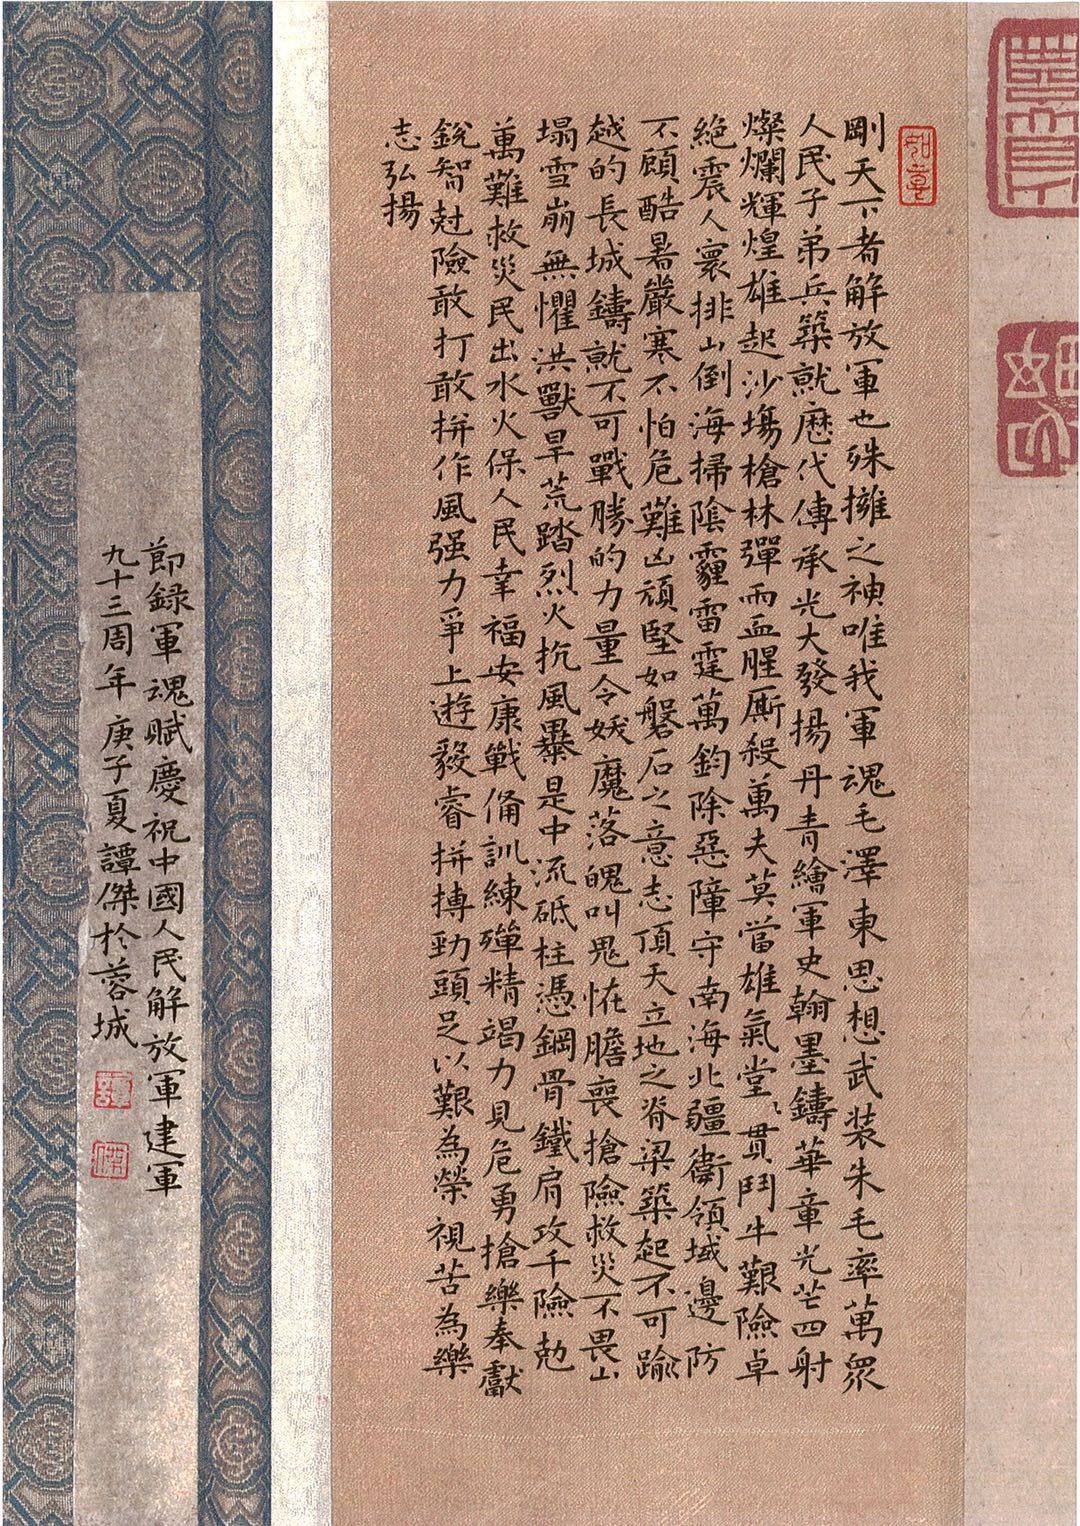 剛天下者解放軍也殊擁之神唯我軍魂毛澤東思想武装朱毛率萬眾
人民子弟兵築就歷代傳承光大發揚丹青繪軍史翰墨鑄華章光芒四射
燦爛輝煌雄起沙場槍林彈雨血腥廝殺萬夫莫當雄氣堂堂貫鬥牛艱險卓
絕震人寰排山倒海掃陰霾雷霆萬鈞除惡障守南海北疆衛領域邊防
不顧酷暑嚴寒不怕危難凶頑堅如磐石之意志頂天立地之脊梁築起不可踰
越的長城鑄就不可戰勝的力量令妖魔落魄叫鬼怪膽喪搶險救災不畏山
塌雪崩無懼洪獸旱荒踏烈火抗風暴是中流砥柱憑鋼骨鐵肩攻千險勊
萬難救災民出水火保人民幸福安康戰備訓練殫精竭力見危勇搶樂奉獻
銳智尅險敢打敢拼作風强力爭上遊毅睿拼搏勁頭足以艱為榮視苦為樂
志弘揚
節録軍魂賦慶祝中國人民解放軍建軍
九十三周年庚子夏譚傑於蓉城